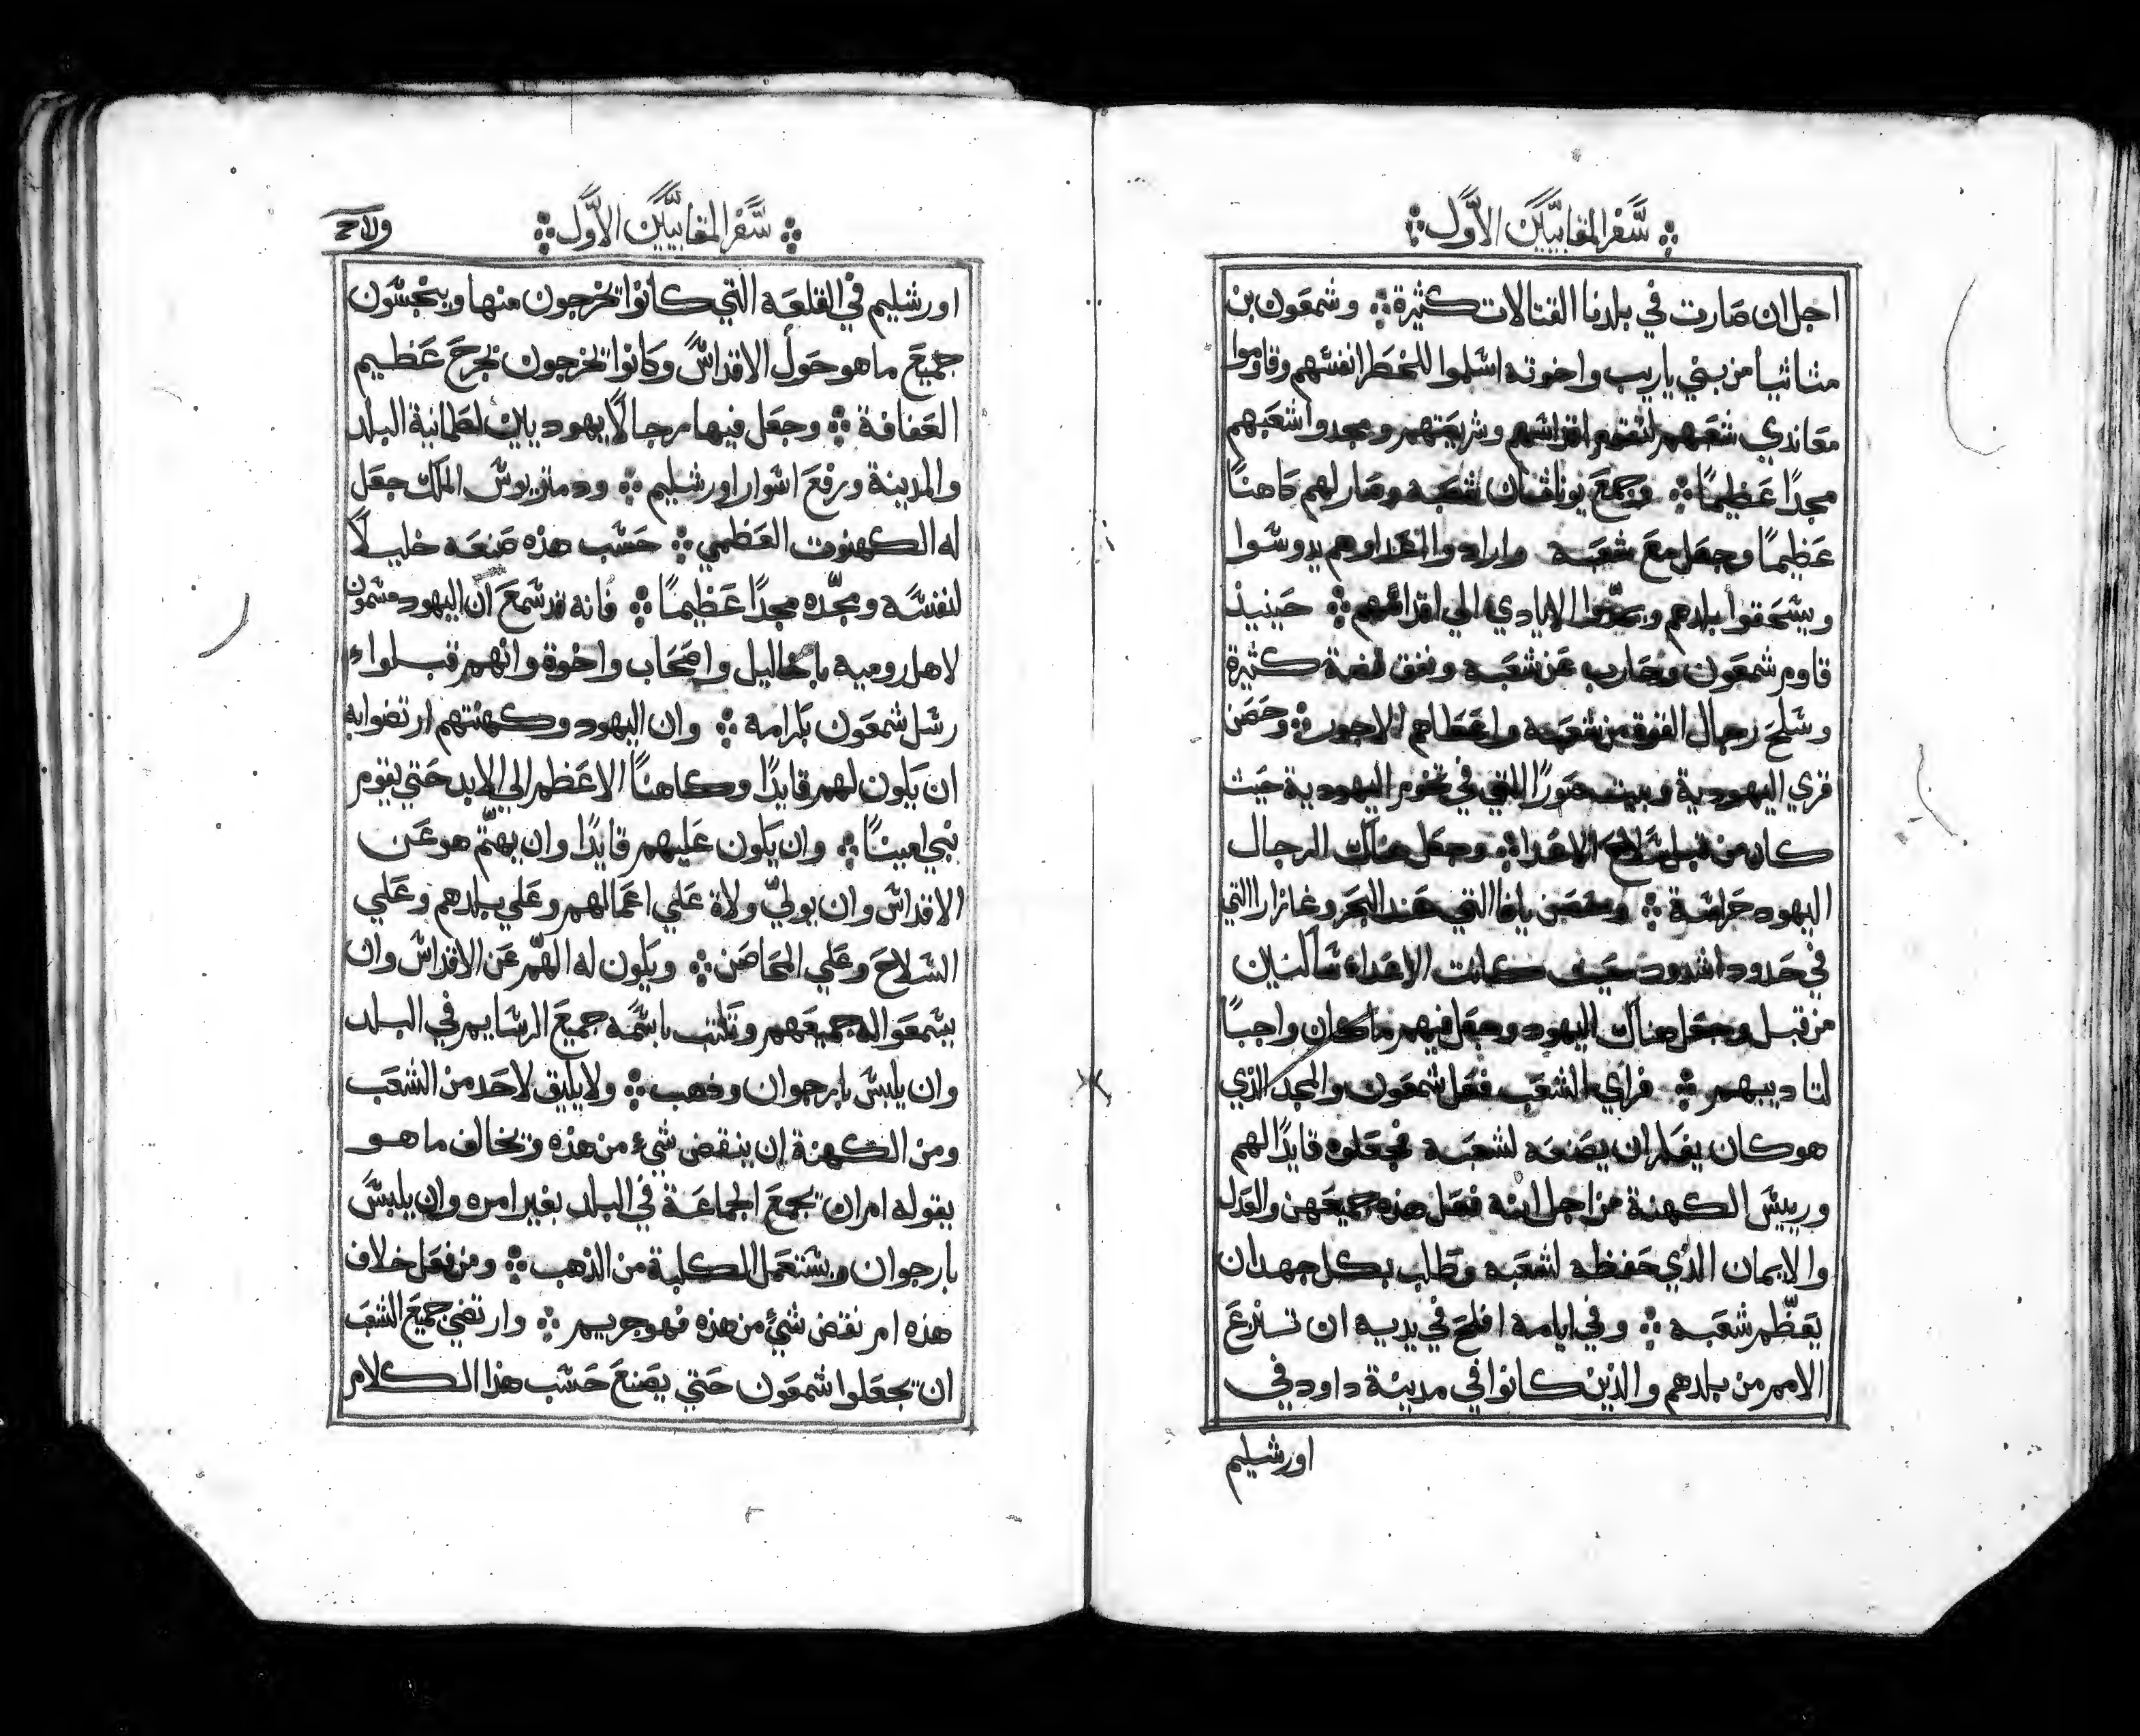 سفر المقابيين الاول
اجل ان صارت في بلدنا القتالات كثيرة وشمعون بن
متاثيا من بني ياريب واخوته اسلموا للخطر انفسهم وقاوموا
معاندي شعبهم لتقوم اقداسهم وشريعتهم ومجدوا شعبهم
مجدًا عظيمًا وجمع يوناثان شعبه وصار لهم كاهنًا
عظيمًا وجعل مع شعبه وارادوا اعداوهم يدوسوا
ويسحقوا بلدهم ويمدوا الايادي الي اقداسهم حينيذ
قاوم شمعون وحارب عن شعبه ونفق فضة كثيرة
وسلح رجال القوة من شعبه واعطاهم الاجور وحصن
قري اليهودية وبيت صورًا التي في تخوم اليهودية حيث
كان من قبل سلاح الاعدا وجعل هناك الرجال
اليهود حراسة وحصن يافا التي عند البحر وغازارا التي
في حدود اشدود حيث كانت الاعداء ساكنين
من قبل وجعل هناك اليهود وجعل فيهم ما كان واجبًا
لتاديبهم فراي الشعب فعل شمعون والمجد الذي
هو كان يفكر ان يصنعه لشعبه فجعلوه قايدًا لهم
ورييس الكهنة من اجل انه فعل هذه جميعهن والعدل
والايمان الذي حفظه لشعبه وطلب بكل جهد ان
يعظّم شعبه وفي ايامه افلح في يديه ان تنزع
الامم من بلدهم والذين كانوا في مدينة داود في
اورشليم
سفر المقابيين الاول
اورشليم في القلعه التي كانوا يخرجون منها وينجسون
جميع ما هو حول الاقداس وكانوا يخرجون بجرح عظيم
العفافة وجعل فيها رجالًا يهوديين لطمانية البلد
والمدينة ورفع اسوار اورشليم ودمتريوس الملك جعل
له الكهنوت العظمي حسب هذه صنعه خليلًا
لنفسه ومجّده مجدًا عظيمًا فانه قد سمع ان اليهود مسمون
لاهل روميه باخاليل واصحاب واخوة وانهم قبلوا
رسل شمعون بكرامة وان اليهود وكهنتهم ارتضوا به
ان يكون لهم قايدًا وكاهنًا الاعظم الي الابد حتي يقوم
نبي امينًا وان يكون عليهم قايدًا وان يهتّم هو عن
الاقداس وان يولّي ولاة علي اعمالهم وعلي بلدهم وعلي
السلاح وعلي المحاصن ويكون له الهّم عن الاقداس وان
يسمعوا له جميعهم وتكتب باسمه جميع الرسايم في البلد
وان يلبس بارجوان وذهب ولا يليق لاحد من الشعب
ومن الكهنة ان ينقض شيء من هذه وتخالف ما هو
يقوله ام ان تجمع الجماعة في البلد بغير امره وان يلبس
بارجوان ويستعمل الكلبة من الذهب ومن فعل خلاف
هذه ام نقض شيء من هذه فهو جريم وارتضي جميع الشعب
ان يجعلوا شمعون حتي يصنع حسب هذا الكلام